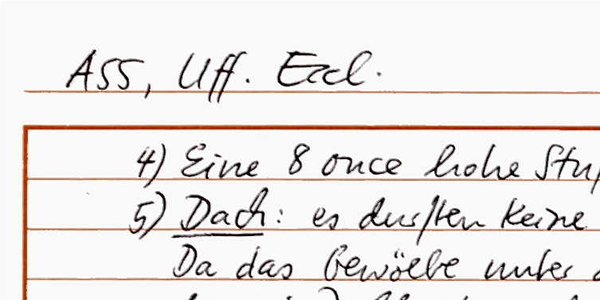 ASS, Uff. Eccl.
4) Eine 8 once hohe
5) Dach: es durften keine
Da das Gewölbe unter